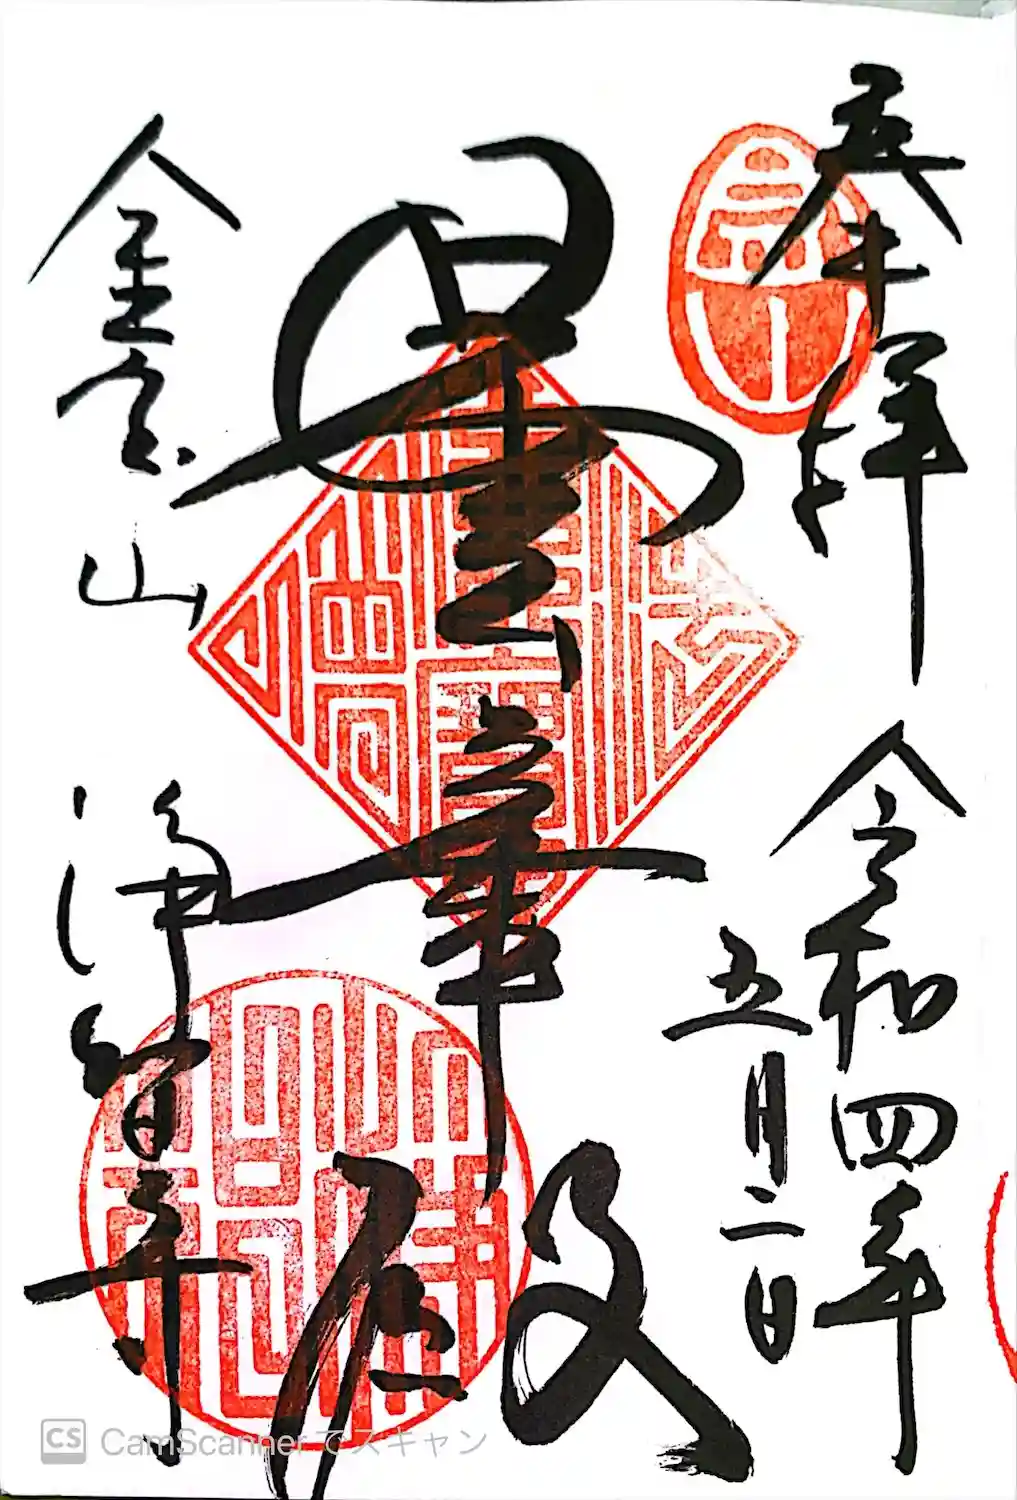 奉拝
令和四年
五月二日
曇華殿
金宝山
浄智寺
CS CamScannerでスキャン